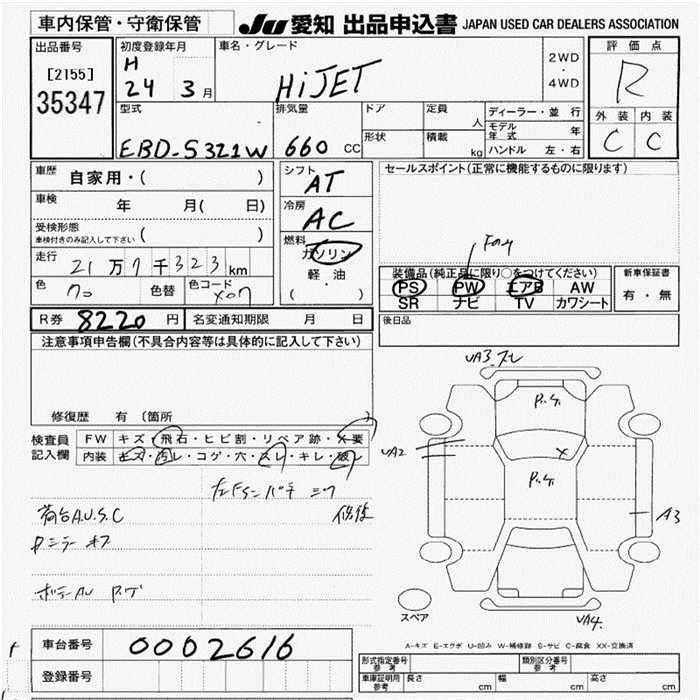 車内保管・守衛保管
JU 愛知 出品申込書 JAPAN USED CAR DEALERS ASSOCIATION
出品番号
[2155]
35347
初度登録年月
H
24 3月
車名・グレード
HiJET
2WD
・
4WD
評価点
R
外装 内装
C C
型式
EBD-S321W
排気量
660 CC
ドア
形状
定員
人
積載
kg
ディーラー・並行
モデル年式 年
ハンドル 左・右
車歴 自家用・( )
車検 年 月( 日)
受検形態
車検付きのみ記入して下さい ( )
走行 21万7千323km
色 色替 色コード
シフト
AT
冷房
AC
燃料
ガソリン
軽油
( )
セールスポイント(正常に機能するものに限ります)
装備品(純正品に限り○をつけてください)
PS PW エアB AW
SR ナビ TV カワシート
新車保証書
有・無
R券 8220 円 名変通知期限 月 日
後日品
注意事項申告欄(不具合内容等は具体的に記入して下さい)
修復歴 有 〔箇所 〕
検査員
記入欄
FW キズ・飛石・ヒビ割・リペア跡・X要
内装 キズ・汚レ・コゲ・穴・スレ・キレ・破レ
荷台A.U.S.C
UA3
P.G.
UA2
P.G.
A3
UA4
スペア
A-キズ E-エクボ U-凹み W-補修跡 S-サビ C-腐食 XX-交換済
車台番号 0002616
登録番号
型式指定番号
参考
類別区分番号
参考
車庫証明用
参考
長さ cm 幅 cm 高さ cm